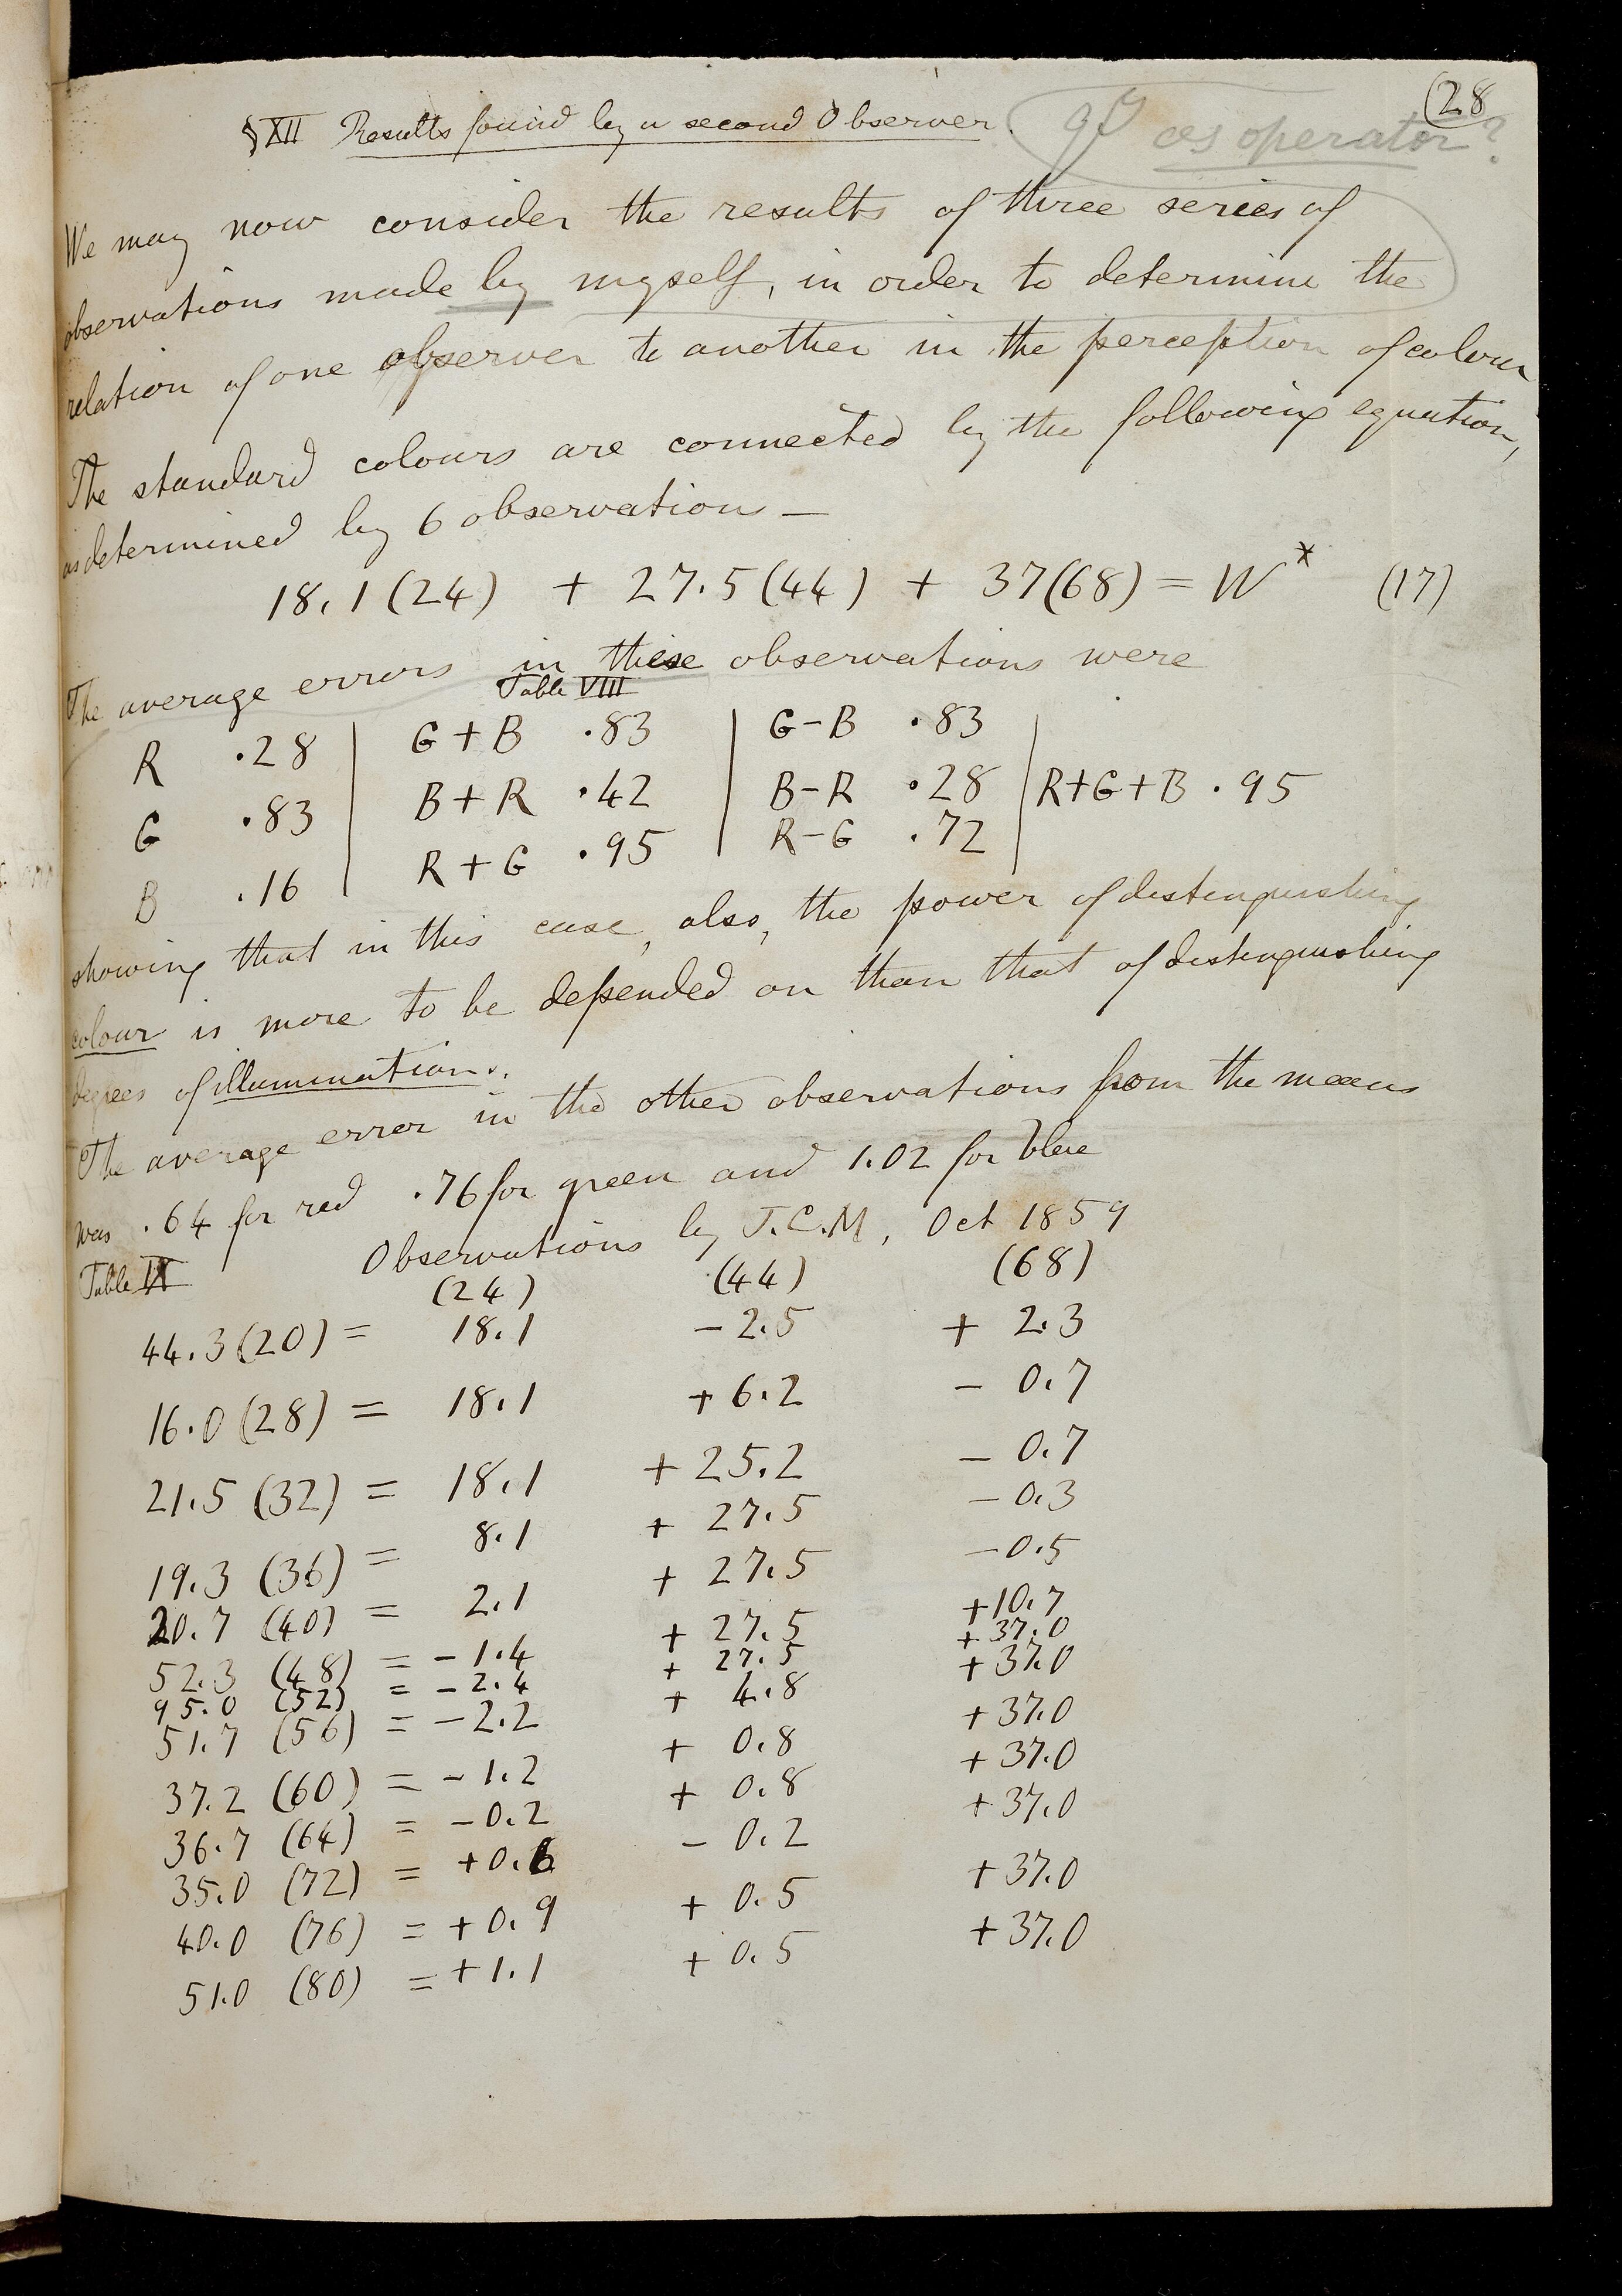 (28
§XII Results found by a second Observer.
as operator?
We may now consider the results of three series of
observations made by myself, in order to determine the
relation of one observer to another in the perception of colour
The standard colours are connected by the following equation,
as determined by 6 observations —
18.1 (24) + 27.5 (44) + 37 (68) = W* (17)
The average errors in these observations were
Table VIII
R .28 | G+B .83 | G-B .83
G .83 | B+R .42 | B-R .28 | R+G+B .95
B .16 | R+G .95 | R-G .72
showing that in this case, also, the power of distinguishing
colour is more to be depended on than that of distinguishing
degrees of illumination.
The average error in the other observations from the means
was .64 for red .76 for green and 1.02 for blue
Table IX Observations by J.C.M, Oct 1859
(24) (44) (68)
44.3 (20) = 18.1 - 2.5 + 2.3
16.0 (28) = 18.1 + 6.2 - 0.7
21.5 (32) = 18.1 + 25.2 - 0.7
19.3 (36) = 8.1 + 27.5 - 0.3
20.7 (40) = 2.1 + 27.5 - 0.5
52.3 (48) = - 1.4 + 27.5 + 10.7
95.0 (52) = - 2.4 + 27.5 + 37.0
51.7 (56) = - 2.2 + 4.8 + 37.0
37.2 (60) = - 1.2 + 0.8 + 37.0
36.7 (64) = - 0.2 + 0.8 + 37.0
35.0 (72) = + 0.6 - 0.2 + 37.0
40.0 (76) = + 0.9 + 0.5 + 37.0
51.0 (80) = + 1.1 + 0.5 + 37.0